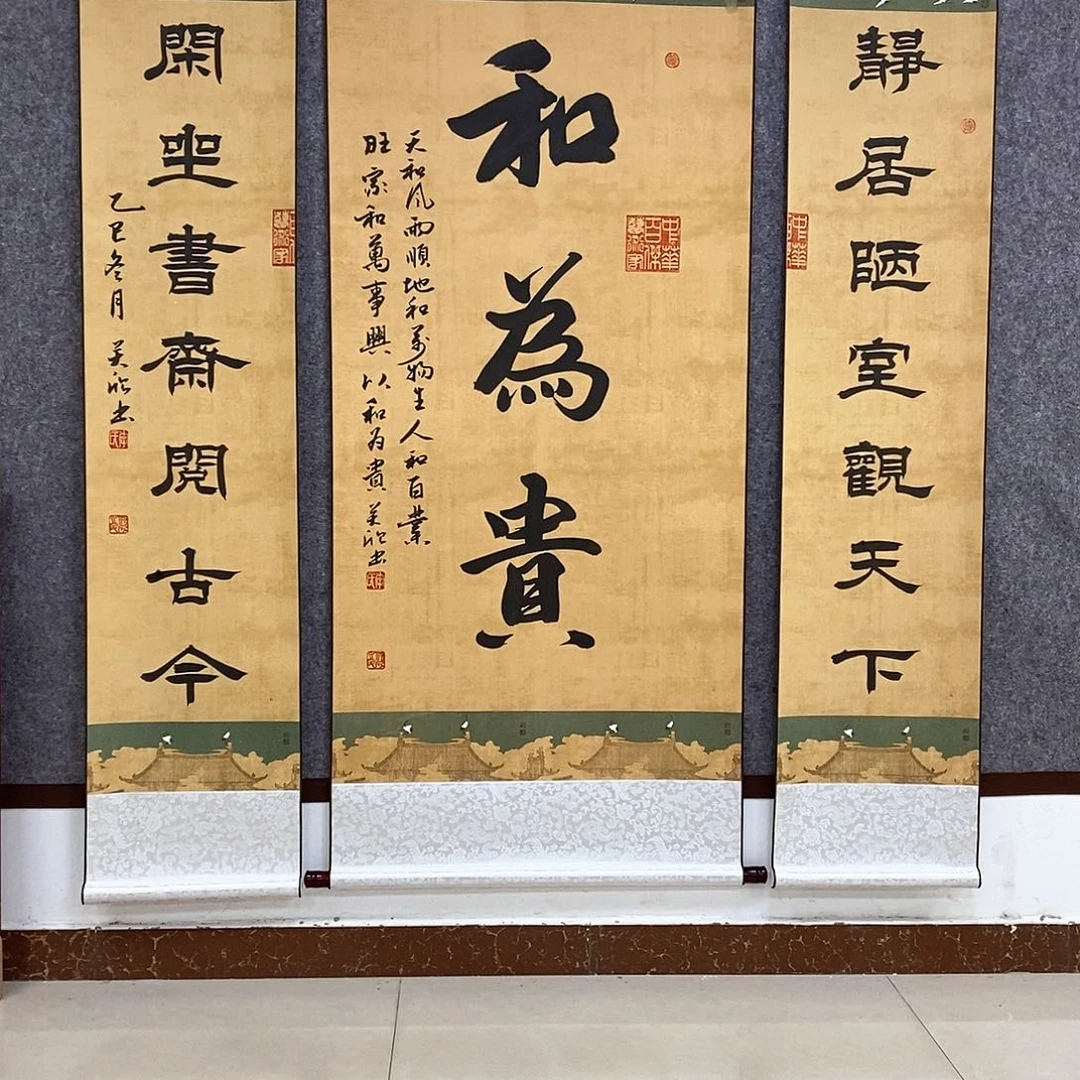 靜居陋室觀天下
和為貴
天和风雨順地和万物生人和百業
旺家和萬事興以和为貴 书
閑坐書齋閱古今
乙巳冬月 书